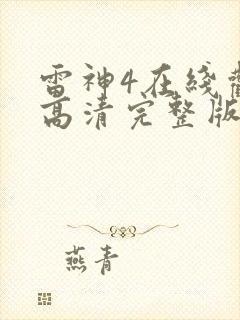 雷神4在线
高清完整版
燕青